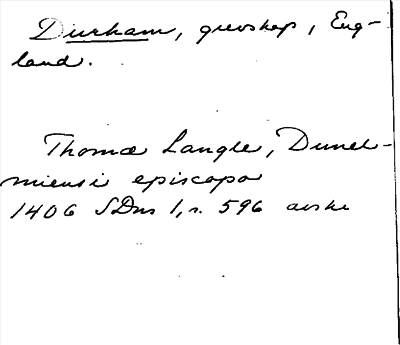 Durham, grevskap, Eng-
land.
Thomæ Langle, Dunel-
miensi episcopo
1406 SDns 1, n. 596 avskr